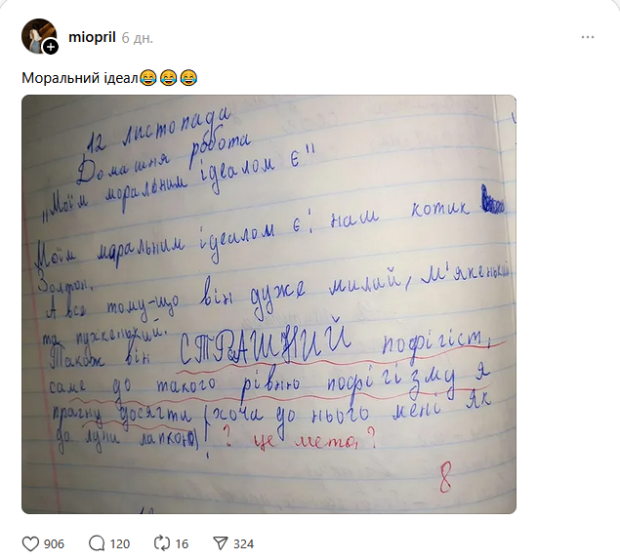 miopril 6 дн.
Моральний ідеал😂😂😂
12 листопада
Домашня робота
„Моїм моральним ідеалом є"
Моїм моральним ідеалом є: наш котик
Золтон.
А все тому-що він дуже милий, м'якенький
та пухкенький.
Також він СТРАШНИЙ пофігіст,
саме до такого рівню пофігізму я
прагну досягти (хоча до нього мені як
до луни лапкою)! ? це мета?
8
906 120 16 324